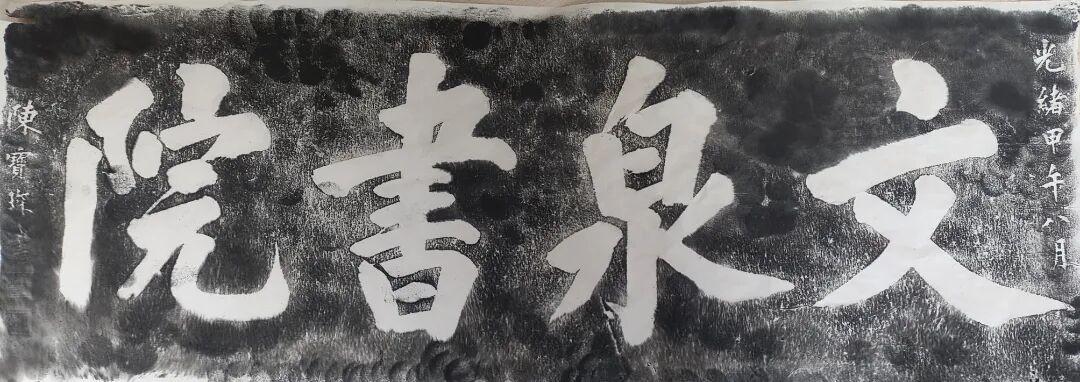 光緒甲午八月
文泉書院
陳寶琛